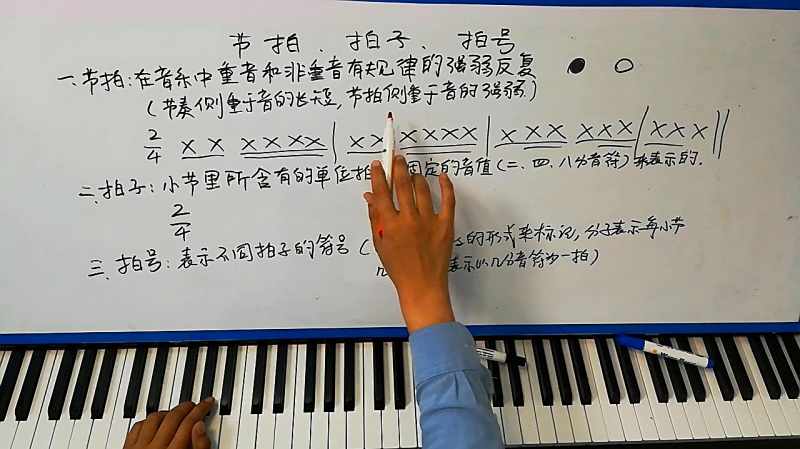 节拍、拍子、拍号
一、节拍:在音乐中重音和非重音有规律的强弱反复
(节奏侧重于音的长短,节拍侧重于音的强弱)
2/4 X X X X X X | X X X X X X | X X X X X X | X X X ||
二、拍子:小节里所含有的单位拍 固定的音值(二、四、八分音符)来表示的.
2/4
三、拍号:表示不同拍子的符号( 的形式来标记,分子表示每小节
表示以几分音符为一拍)